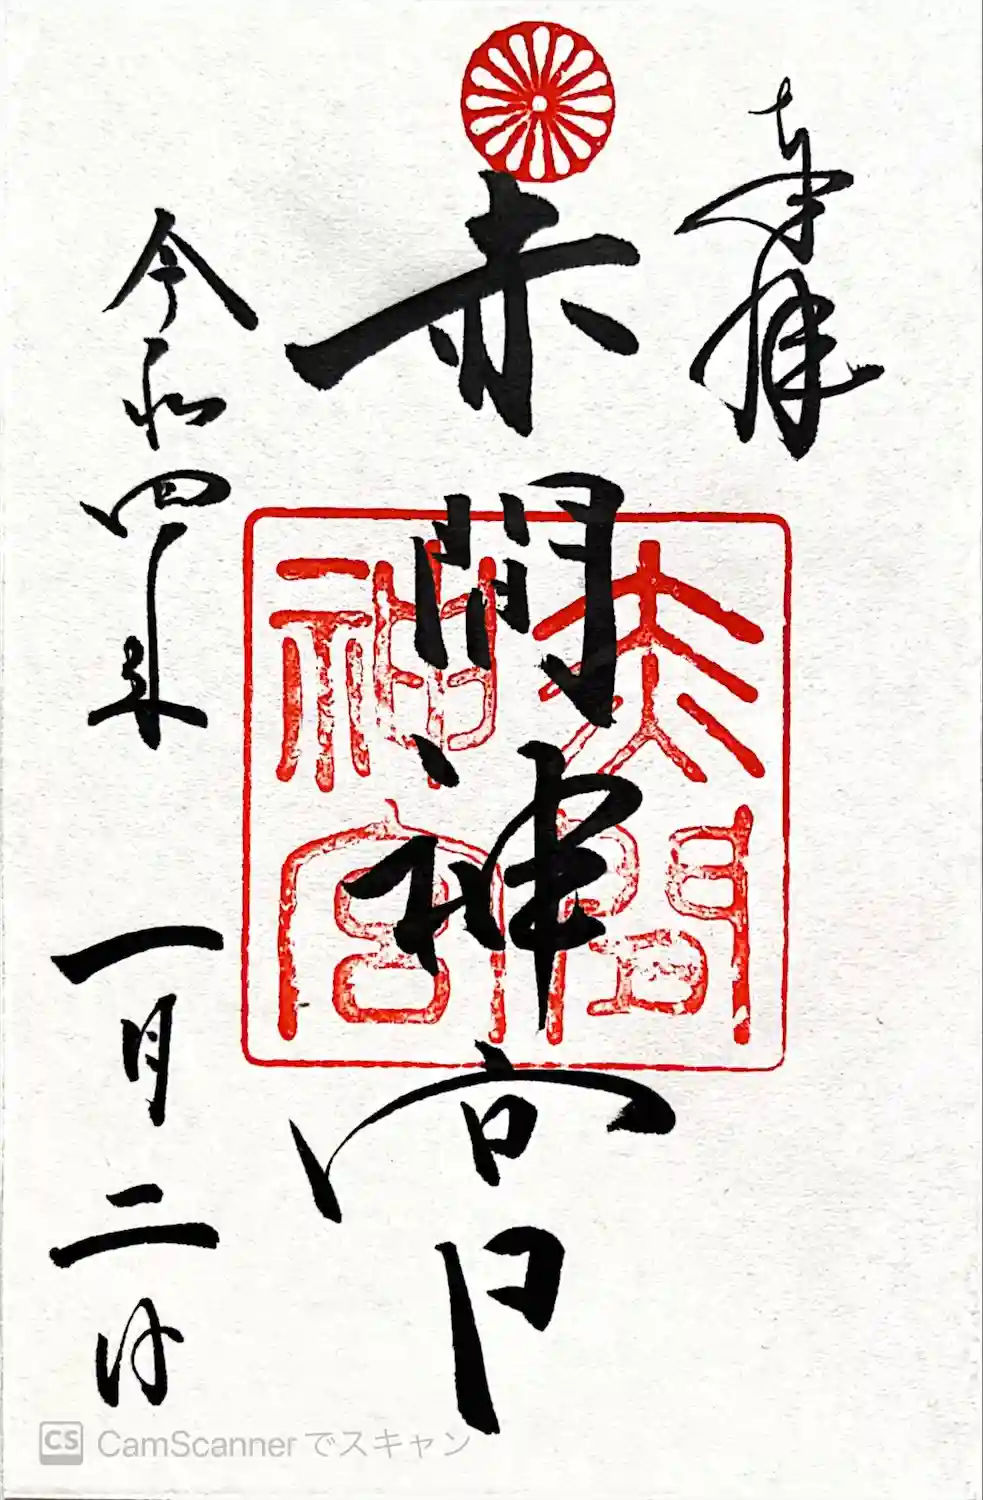 奉拝
赤間神宮
赤間
神宮
令和四年
一月二日
CS CamScannerでスキャン